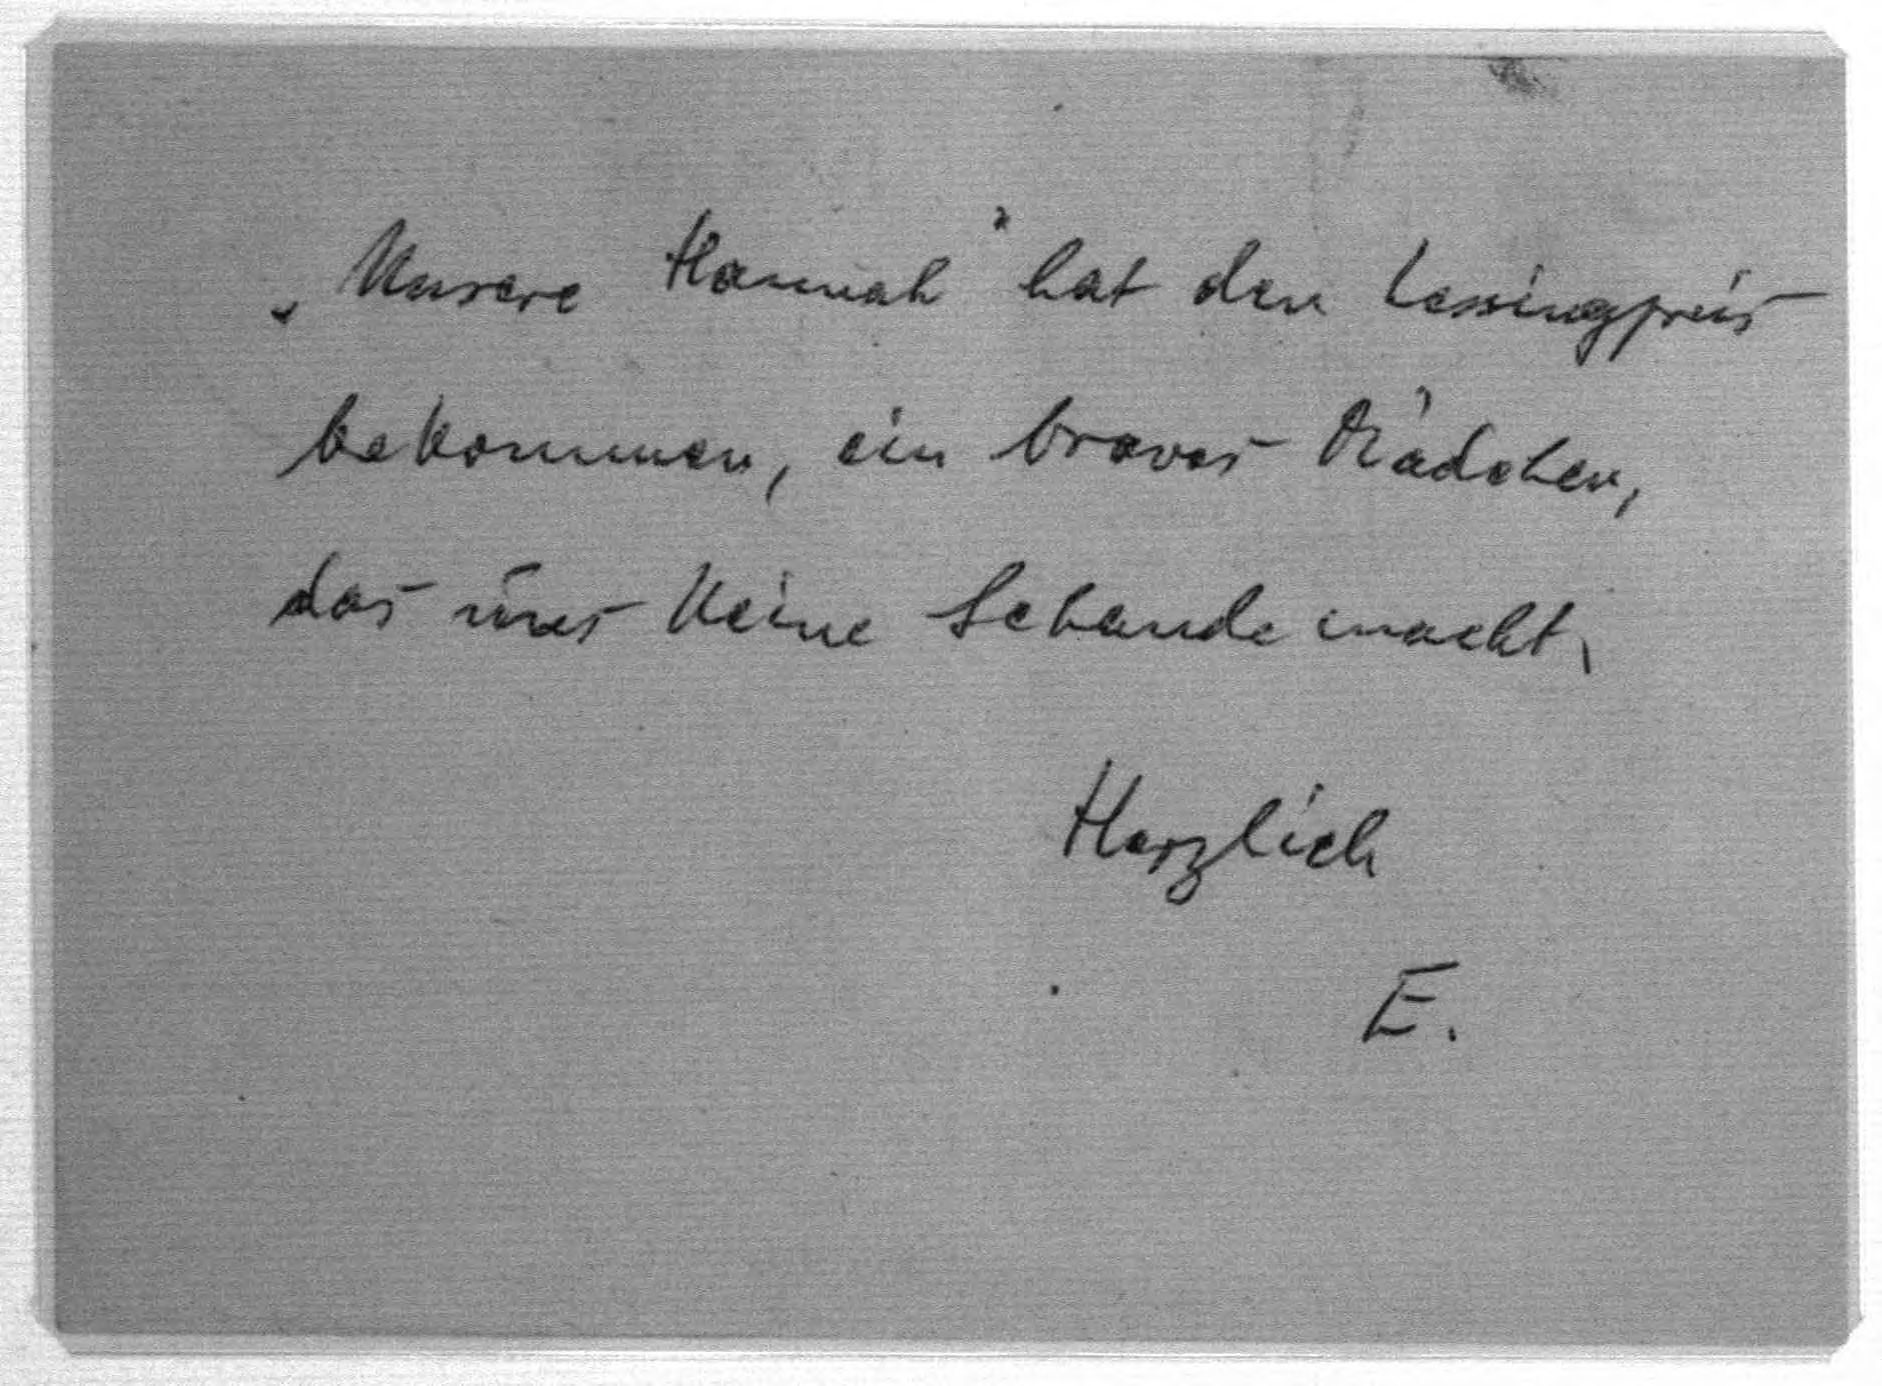 „Unsere Hannah" hat den Lessingpreis
bekommen, ein braves Mädchen,
das uns keine Schande macht.
Herzlich
E.